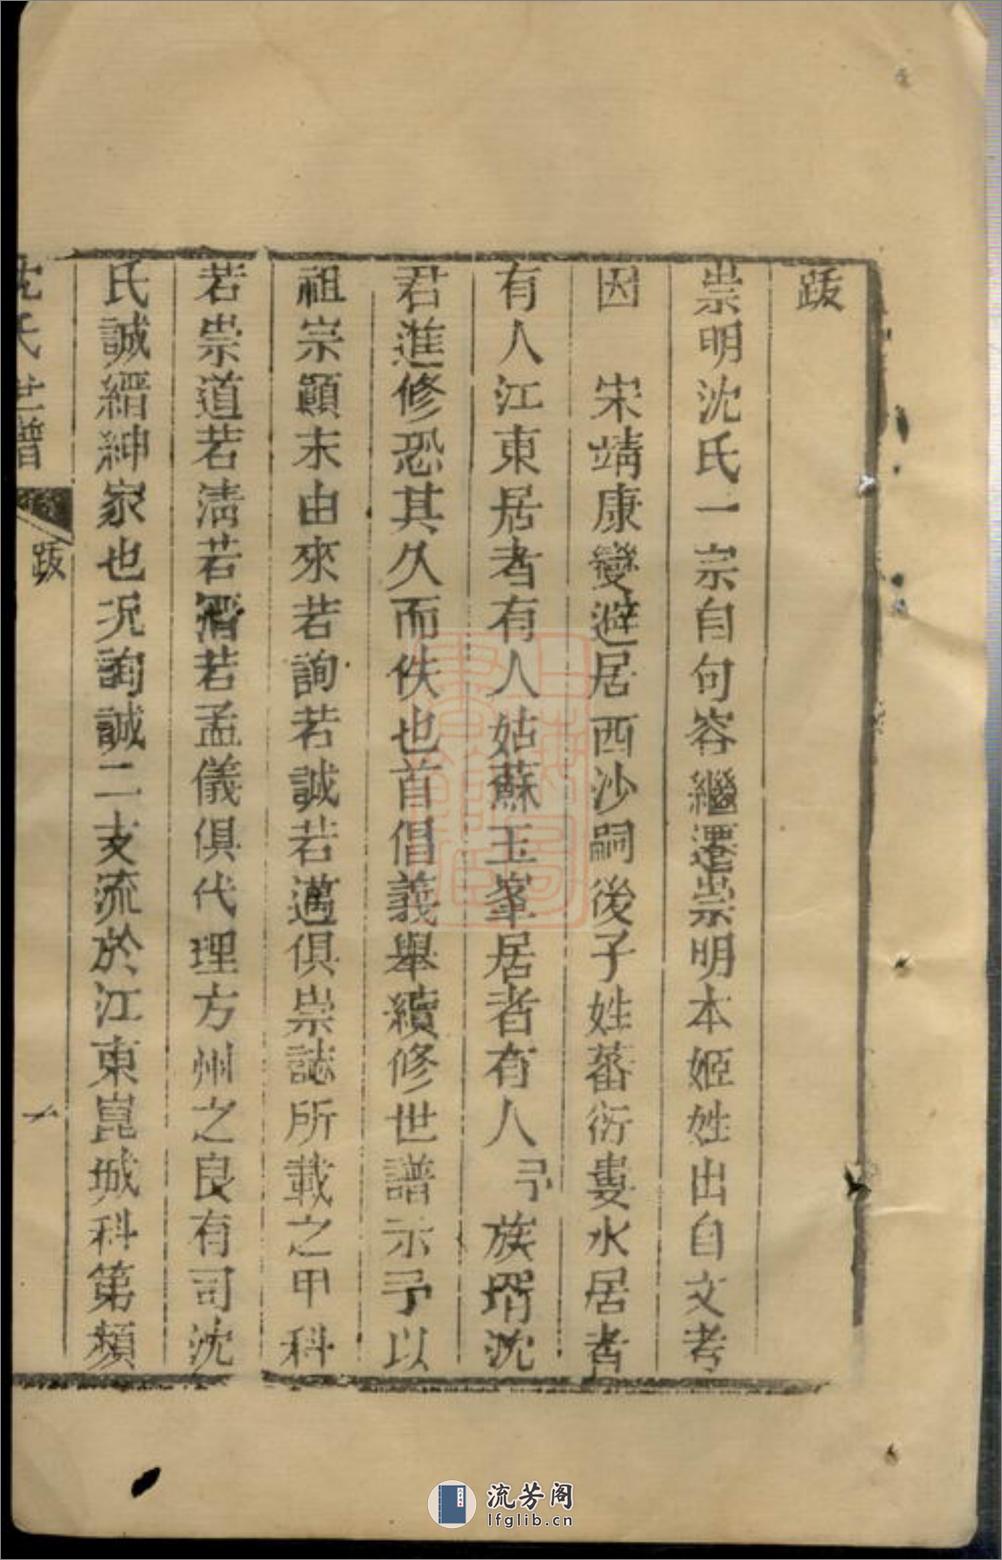 跋
崇明沈氏一宗自句容繼遷崇明本姬姓出自文考
因　宋靖康變避居西沙嗣後子姓蕃衍婁水居者
有人江東居者有人姑蘇玉峯居者有人予族壻沈
君進修恐其久而佚也首倡義舉續修世譜示予以
祖宗顚末由來若詢若誠若邁俱崇誌所載之甲科
若崇道若淸若濳若孟儀俱代理方州之良有司沈
氏誠縉紳家也况詢誠二支流於江東崑城科第類
沈氏世譜
跋
一
流芳阁
lfglib.cn